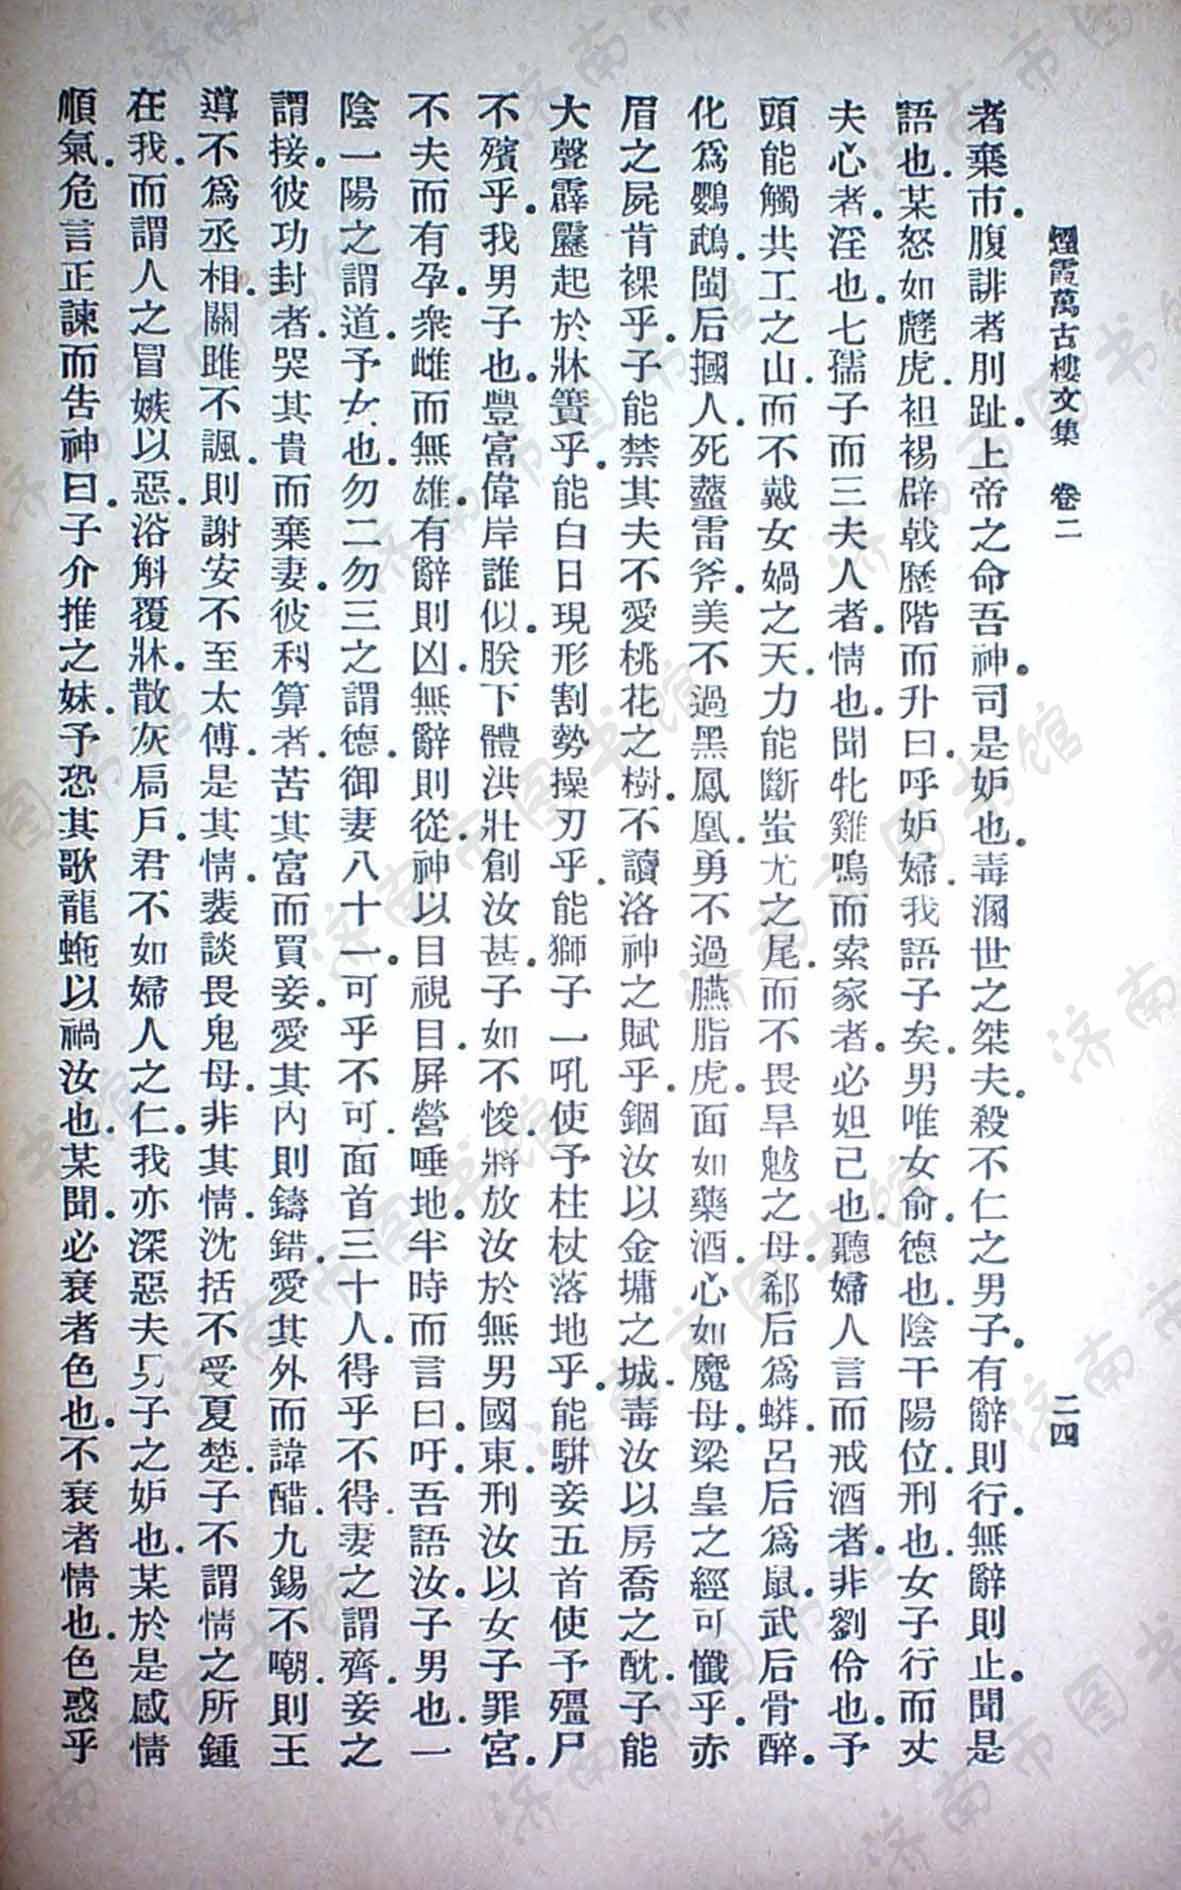 煙霞萬古樓文集 卷二 二四
者棄市。腹誹者刖趾。上帝之命吾神。司是妒也。毒溷世之桀夫。殺不仁之男子。有辭則行。無辭則止。聞是
語也。某怒如虓虎。袒裼辟戟。歷階而升曰。呼妒婦。我語子矣。男唯女俞。德也。陰干陽位。刑也。女子行而丈
夫心者。淫也。七孺子而三夫人者。情也。聞牝雞鳴而索家者。必妲己也。聽婦人言而戒酒者。非劉伶也。予
頭能觸共工之山。而不戴女媧之天。力能斷蚩尤之尾。而不畏旱魃之母。郗后爲蟒。呂后爲鼠。武后骨醉。
化爲鸚鵡。閩后摑人。死虀雷斧。美不過黑鳳凰。勇不過臙脂虎。面如藥酒。心如魔母。梁皇之經可懺乎。赤
眉之屍肯裸乎。子能禁其夫不愛桃花之樹。不讀洛神之賦乎。錮汝以金墉之城。毒汝以房喬之酖。子能
大聲霹靂起於牀簀乎。能白日現形割勢操刃乎。能獅子一吼使予柱杖落地乎。能騈妾五首使予殭尸
不殯乎。我男子也。豐富偉岸誰似。朕下體洪壯創汝甚。子如不悛。將放汝於無男國東。刑汝以女子罪宮。
不夫而有孕。衆雌而無雄。有辭則凶。無辭則從。神以目視目。屏營唾地。半時而言曰。吁。吾語汝。子男也。一
陰一陽之謂道。予女也。勿二勿三之謂德。御妻八十一。可乎不可。面首三十人。得乎不得。妻之謂齊。妾之
謂接。彼功封者。哭其貴而棄妻。彼利算者。苦其富而買妾。愛其內則鑄錯。愛其外而諱醋。九錫不嘲。則王
導不爲丞相。關雎不諷。則謝安不至太傅。是其情。裴談畏鬼母。非其情。沈括不受夏楚。子不謂情之所鍾
在我。而謂人之冒嫉以惡。浴斛覆牀。散灰扃戶。君不如婦人之仁。我亦深惡夫兄子之妒也。某於是感情
順氣。危言正諫而告神曰。子介推之妹。予恐其歌龍虵以禍汝也。某聞。必衰者色也。不衰者情也。色惑乎